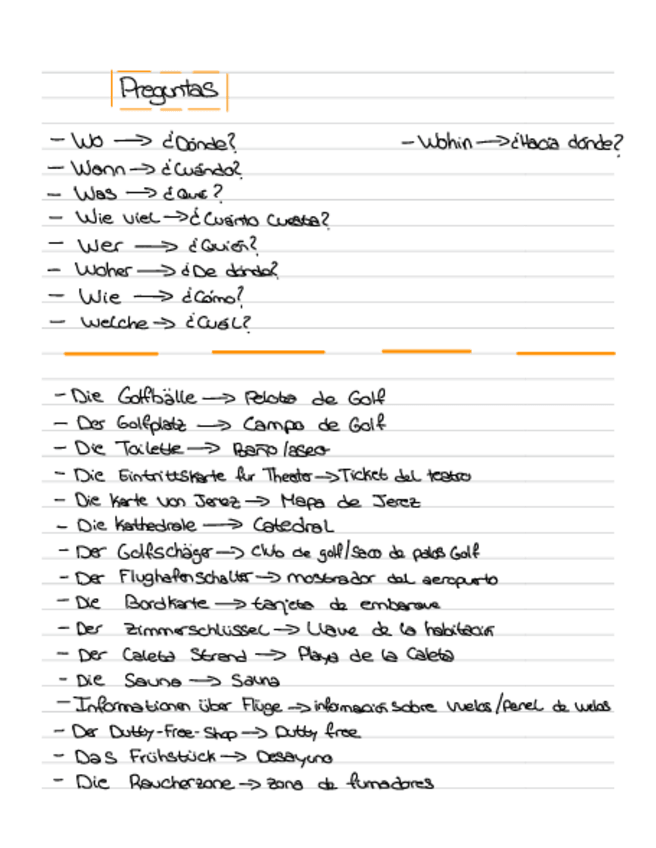 Preguntas
- Wo → ¿Dónde? - Wohin → ¿Hacia dónde?
- Wann → ¿Cuándo?
- Was → ¿Qué?
- Wie viel → ¿Cuánto cuesta?
- Wer → ¿Quién?
- Woher → ¿De dónde?
- Wie → ¿Cómo?
- Welche → ¿Cuál?
- Die Golfbälle → Pelota de Golf
- Der Golfplatz → Campo de Golf
- Die Toilette → Baño/aseo
- Die Eintrittskarte fur Theater → Ticket del teatro
- Die Karte von Jerez → Mapa de Jerez
- Die Kathedrale → Catedral
- Der Golfschäger → Club de golf/saco de palos Golf
- Der Flughafenschalter → mostrador del aeropuerto
- Die Bordkarte → tarjeta de embarque
- Der Zimmerschlüssel → Llave de la habitación
- Der Caleta Strand → Playa de la Caleta
- Die Sauna → Sauna
- Informationen über Flüge → información sobre vuelos/Panel de vuelos
- Der Dutty-Free-Shop → Dutty free
- Das Frühstück → Desayuno
- Die Raucherzone → zona de fumadores